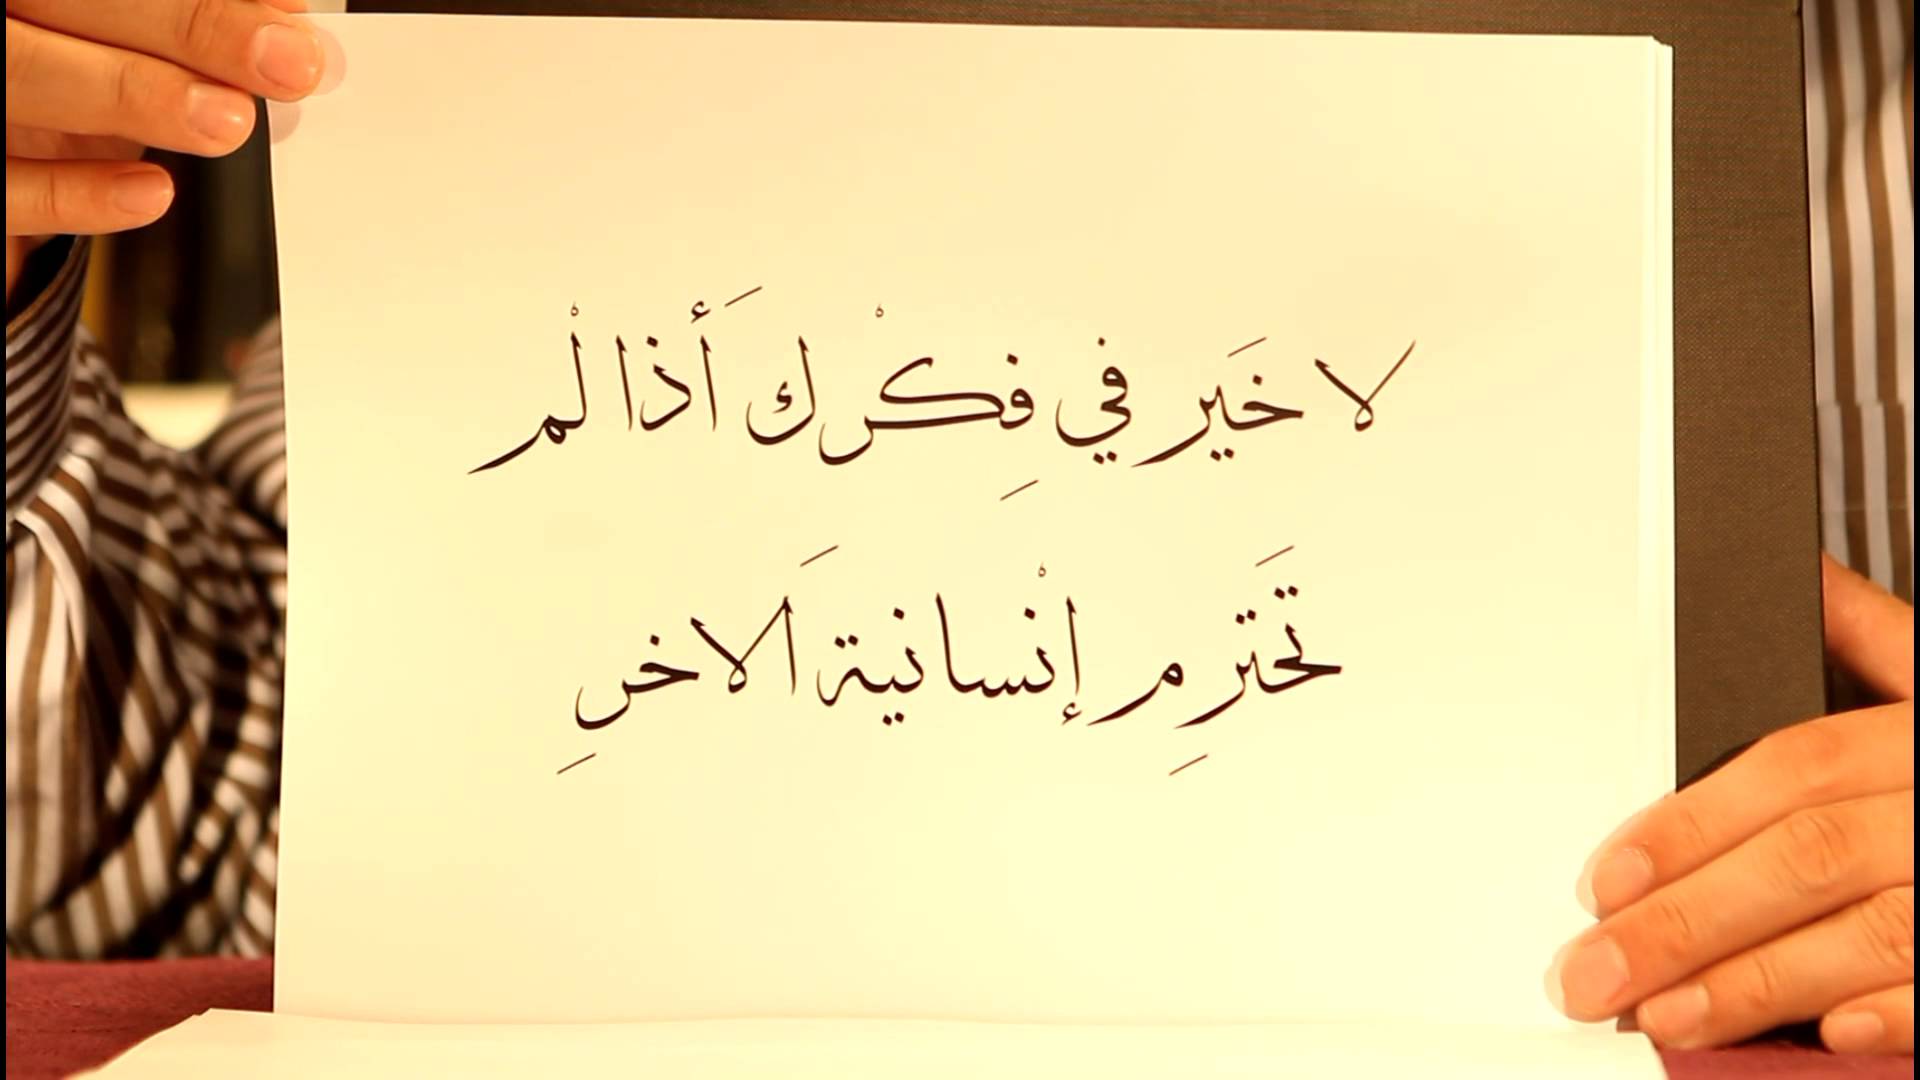 لا خَير في فِكْرك أَذا لْم
تَحترِم إنْسانية اَلاخرِ